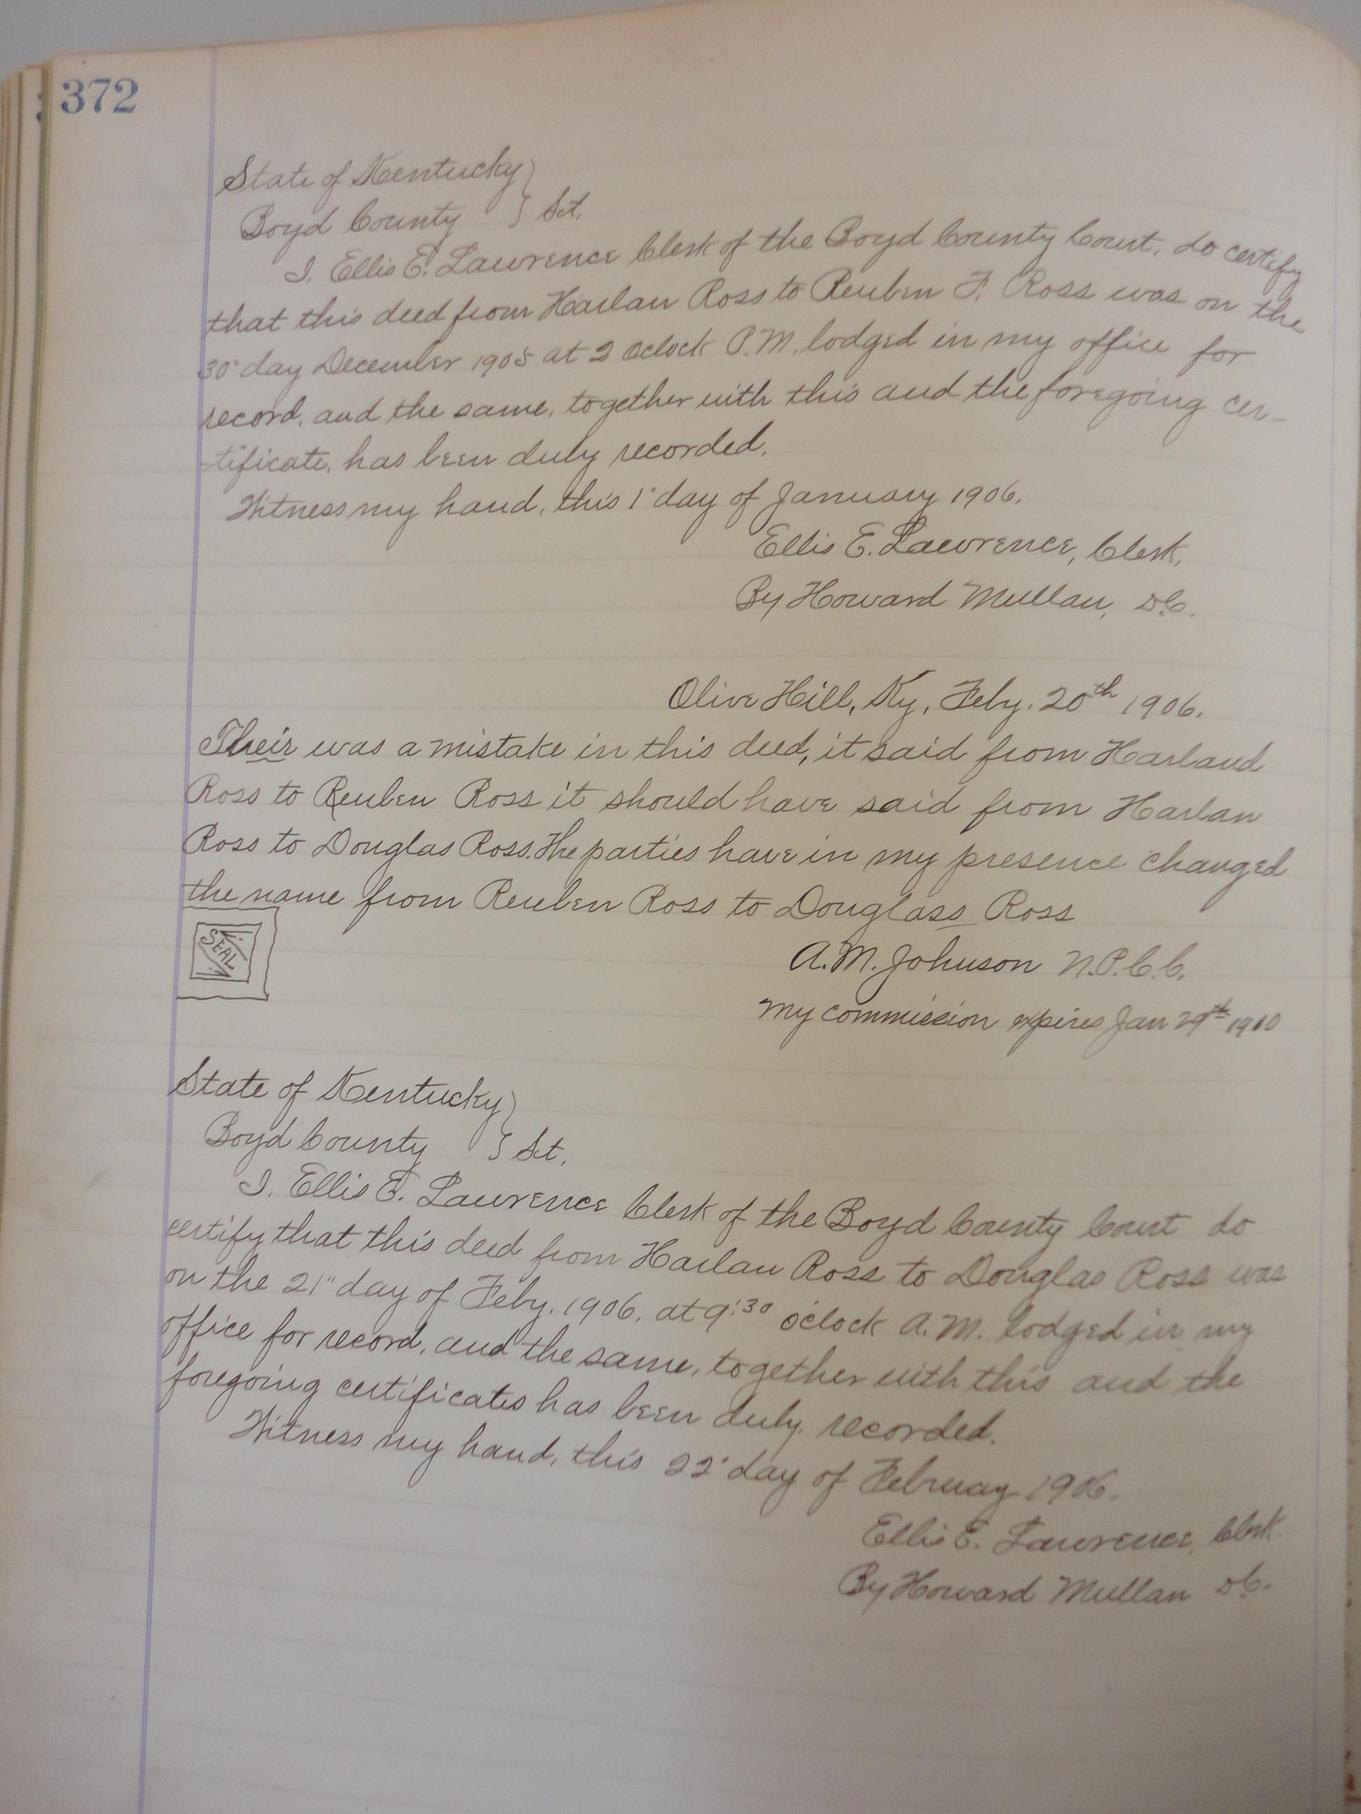 372
State of Kentucky }
Boyd County } Sct.
I. Ellis E. Lawrence Clerk of the Boyd County Court, do certify
that this deed from Harlan Ross to Reuben F. Ross was on the
30" day December 1905 at 2 oclock P.M. lodged in my office for
record, and the same, together with this and the foregoing cer-
tificate, has been duly recorded.
Witness my hand, this 1" day of January 1906.
Ellis E. Lawrence, Clerk,
By Howard Mullan, D.C.
Olive Hill, Ky, Feby. 20th 1906.
Their was a mistake in this deed, it said from Harland
Ross to Reuben Ross it should have said from Harlan
Ross to Douglas Ross. The parties have in my presence changed
the name from Reuben Ross to Douglass Ross
SEAL
A.M. Johnson N.P.C.C.
My commission expires Jan 29th 1910
State of Kentucky }
Boyd County } Sct.
I. Ellis E. Lawrence Clerk of the Boyd County Court do
certify that this deed from Harlan Ross to Douglas Ross was
on the 21" day of Feby. 1906, at 9:30 o'clock A.M. lodged in my
office for record, and the same, together with this and the
foregoing certificates has been duly recorded.
Witness my hand, this 22" day of February 1906.
Ellis E. Lawrence, Clerk
By Howard Mullan D.C.